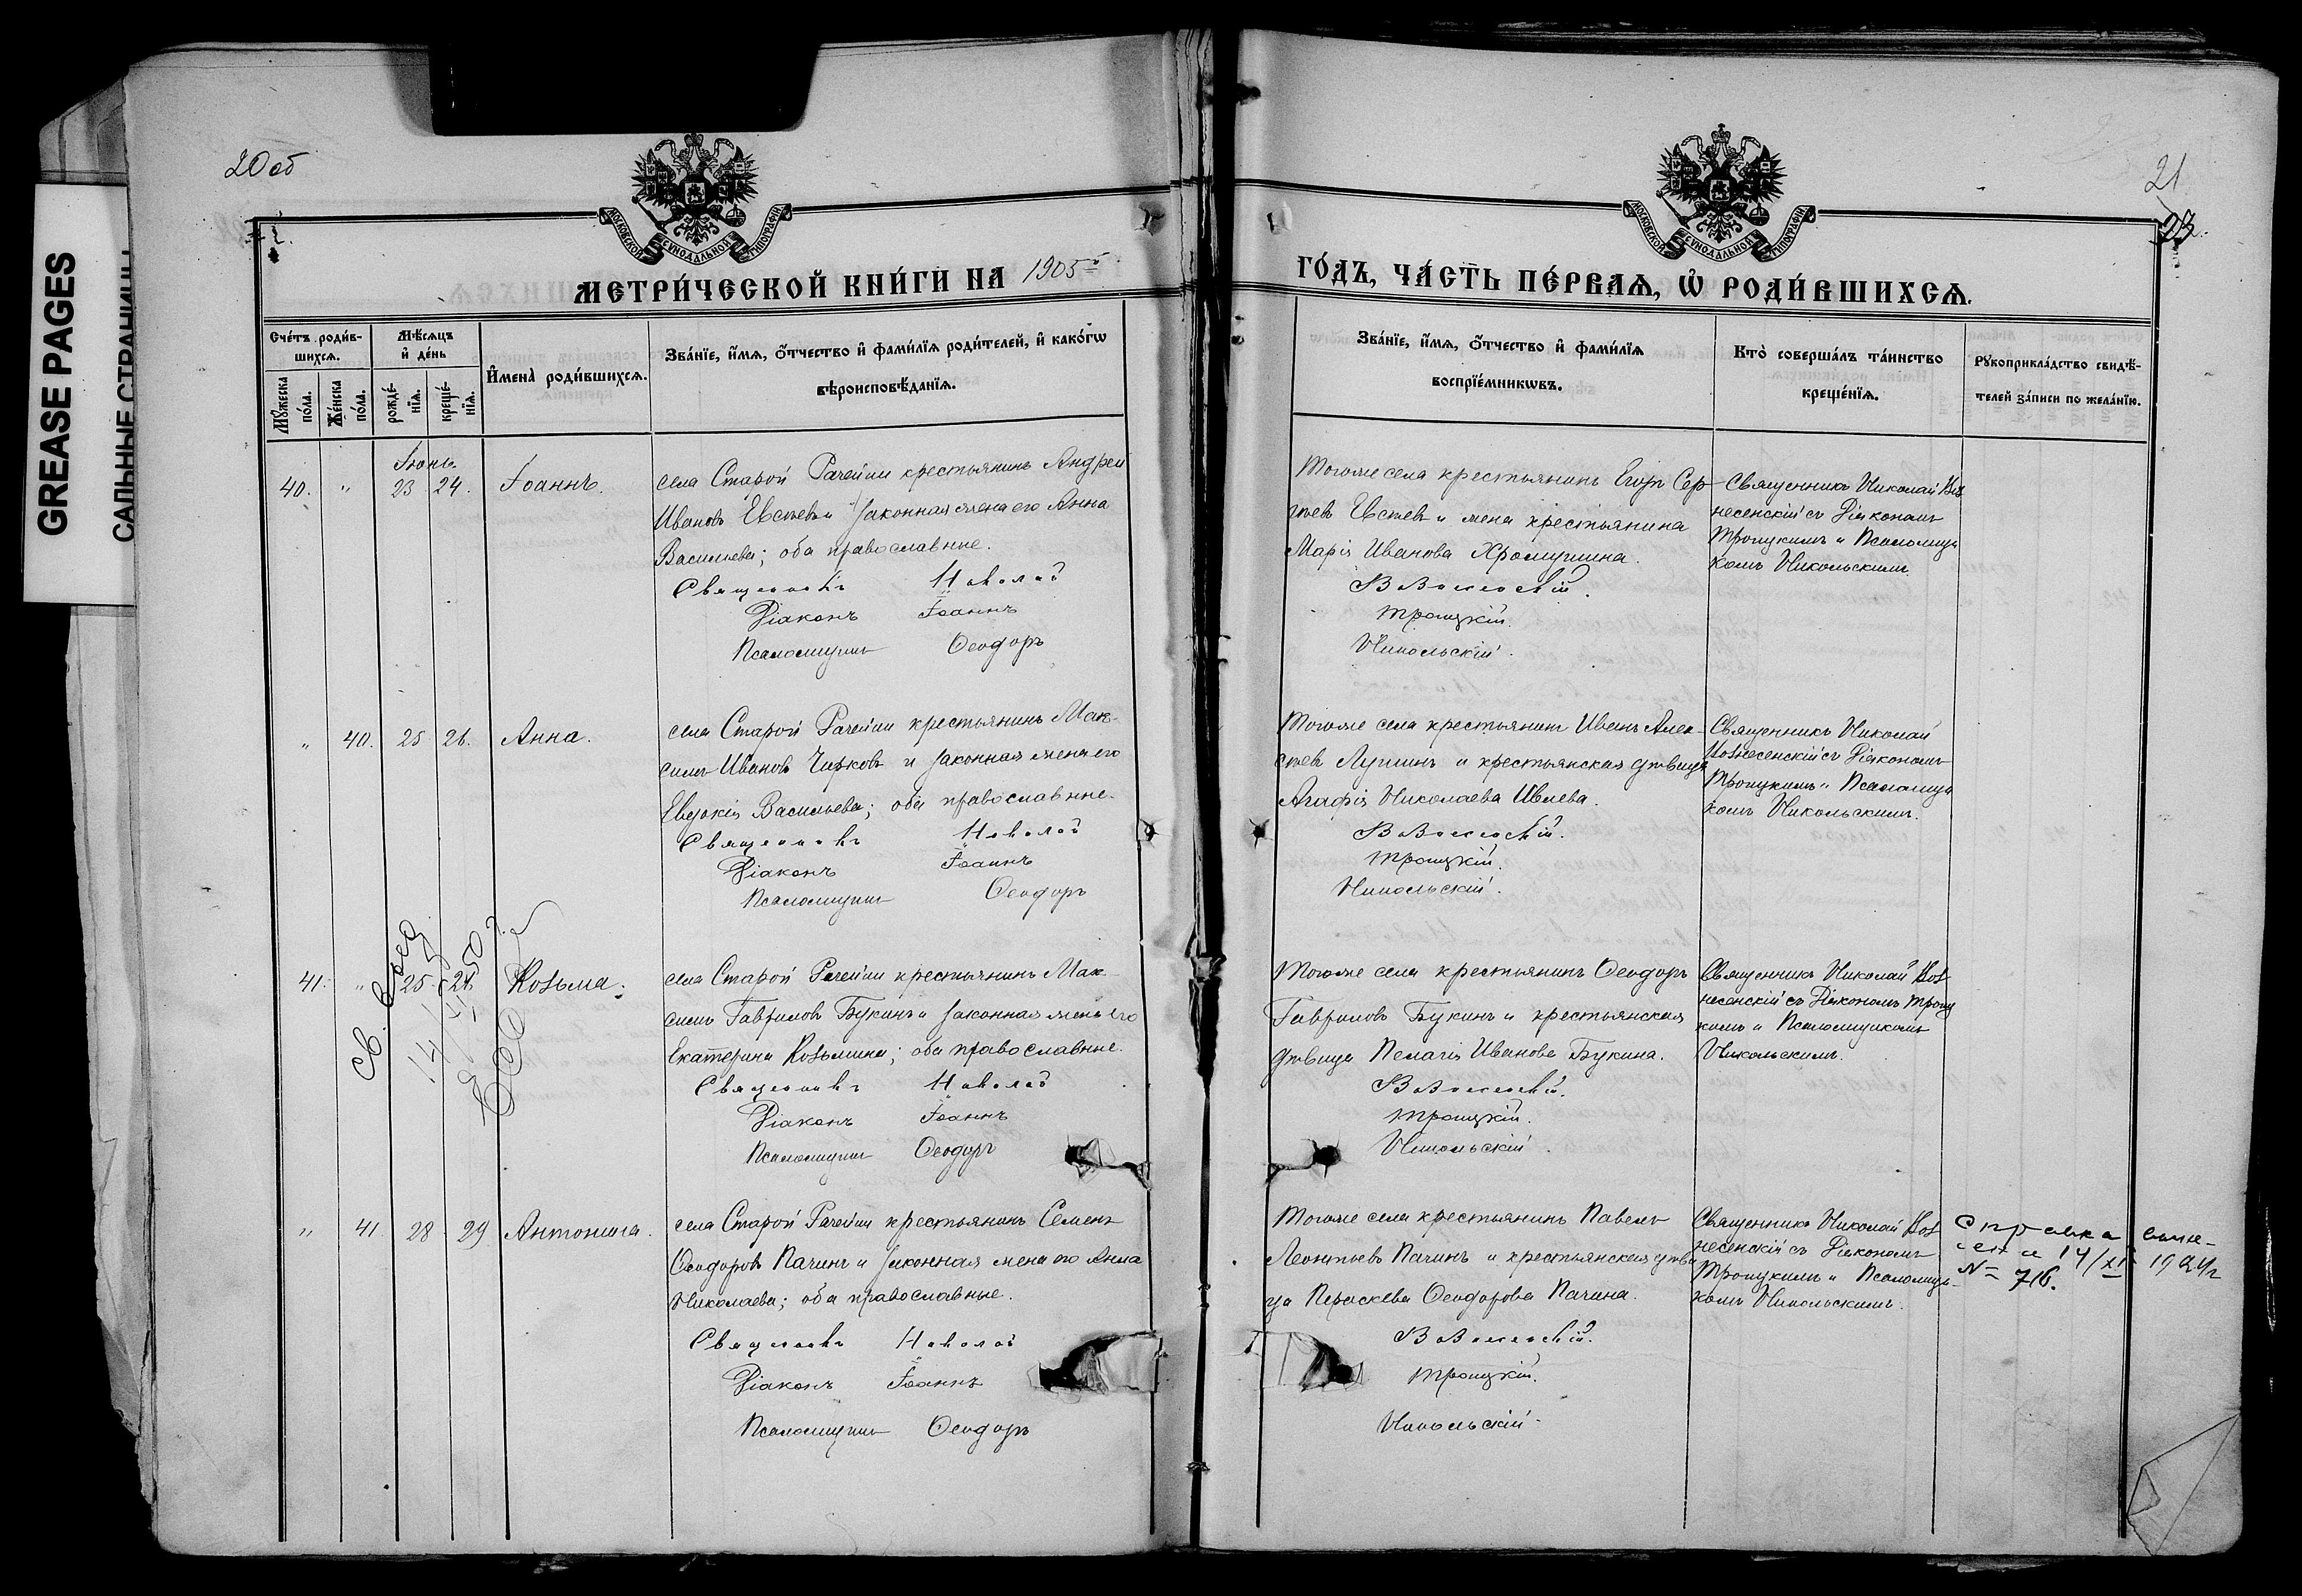 GREASE PAGES
САЛЬНЫЕ СТРАНИЦЫ
20 об
21
МОСКОВСКОЙ СѴНОДАЛЬНОЙ ТИПОГРАФІИ
МОСКОВСКОЙ СѴНОДАЛЬНОЙ ТИПОГРАФІИ
МЕТРИ́ЧЕСКОЙ КНИ́ГИ НА 1905й
ГО́ДЪ, ЧА́СТЬ ПЕ́РВАѦ, Ѽ РОДИ́ВШИХСѦ.
Сче́тъ роди́в-
шихсѧ.
Мꙋжеска по́ла.
Же́нска по́ла.
Мѣ́сѧцъ
и҆ де́нь
рожде́-
нїѧ.
креще́-
нїѧ.
И҆мена̀ роди́вшихсѧ.
Зва́нїе, и҆́мѧ, ѻ҆́тчество и҆ фами́лїѧ роди́телей, и҆ како́гѡ
вѣроисповѣ́данїѧ.
Зва́нїе, и҆́мѧ, ѻ҆́тчество и҆ фами́лїѧ
воспрїе́мникѡвъ.
Кто̀ соверша́лъ та́инство
креще́нїѧ.
Рꙋкоприкла́дство свидѣ́-
телей за́писи по жела́нїю.
Іюнь
40. " 23 24. Іоаннъ.
села Старой Рачейки крестьянинъ Андрей
Ивановъ Евсѣевъ и законная жена его Анна
Васильева; оба православные.
Священникъ Николай
Діаконъ Іоаннъ
Псаломщикъ Ѳеодоръ
Тогоже села крестьянинъ Егоръ Сер-
гѣевъ Евсѣевъ и жена крестьянина
Марія Иванова Хромушина.
Вознесенскій.
Троицкій.
Никольскій.
Священникъ Николай Воз
несенскій съ Діакономъ
Троицкимъ и Псаломщи
комъ Никольскимъ.
" 40. 25 26. Анна.
села Старой Рачейки крестьянинъ Мак-
симъ Ивановъ Чирковъ и законная жена его
Евдокія Васильева; оба православные.
Священникъ Николай
Діаконъ Іоаннъ
Псаломщикъ Ѳеодоръ
Тогоже села крестьянинъ Иванъ Алек-
сѣевъ Лупшинъ и крестьянская дѣвица
Агафія Николаева Ивлева.
Вознесенскій.
Троицкій.
Никольскій.
Священникъ Николай
Вознесенскій съ Діакономъ
Троицкимъ и Псаломщи
комъ Никольскимъ.
41. " 25 Козьма.
св. выд
села Старой Рачейки крестьянинъ Мак-
симъ Гавриловъ Букинъ и законная жена его
Екатерина Козьмина; оба православные.
Священникъ Николай
Діаконъ Іоаннъ
Псаломщикъ Ѳеодоръ
Тогоже села крестьянинъ Ѳеодоръ
Гавриловъ Букинъ и крестьянская
дѣвица Пелагія Иванова Букина.
Вознесенскій.
Троицкій.
Никольскій.
Священникъ Николай Воз
несенскій съ Діакономъ Троиц
кимъ и Псаломщикомъ
Никольскимъ.
" 41 28 29 Антонина.
села Старой Рачейки крестьянинъ Семенъ
Ѳеодоровъ Пачинъ и законная жена его Анна
Николаева; оба православные.
Священникъ Николай
Діаконъ Іоаннъ
Псаломщикъ Ѳеодоръ
Тогоже села крестьянинъ Павелъ
Леонтьевъ Пачинъ и крестьянская дѣви
ца Параскева Ѳеодорова Пачина.
Вознесенскій.
Троицкій.
Никольскій.
Священникъ Николай Воз
несенскій съ Діакономъ
Троицкимъ и Псаломщи-
комъ Никольскимъ.
Справка
14/XI 1924г
№ 716.